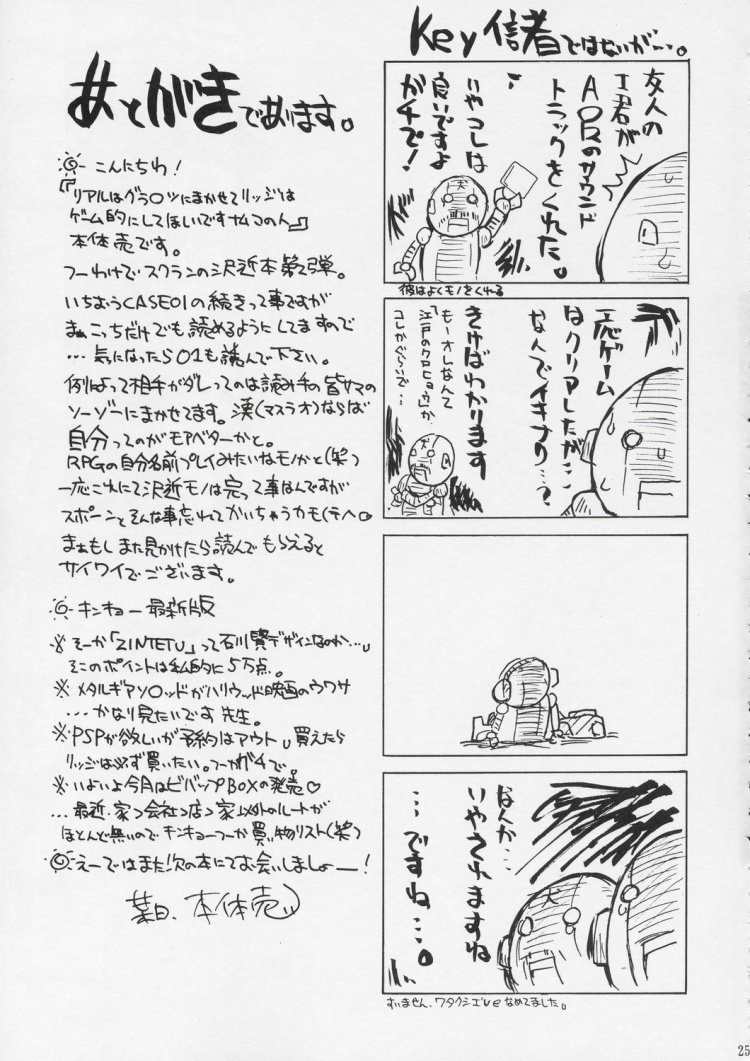 Key信者ではないが…。
友人の
I君が
AIRのサウンド
トラックをくれた。
いやコレは
良いですよ
ガチで!
彼はよくモノをくれる
一応ゲーム
はクリアしたが…
なんでイキナリ…?
きけばわかります
もーオレなんて
「江戸のクロヒョウ」か、
コレかぐらいで…
なんか…
いやされますね
…ですね…。
すいません、ワタクシエve なめてました。
あとがきであります。
こんにちわ!
『リアルはグラ○ツにまかせてリッジは
ゲーム的にしてほしいですナムコのん』
本体売です。
つーわけでスクランの沢近本第2弾。
いちおうCASE01の続きって事ですが
まぁこっちだけでも読めるようにしてますので
…気になったら01も読んで下さい。
例によって相手がダレってのは読み手の皆サマの
ソーゾーにまかせてます。漢(マスラオ)ならば
自分ってのがモアベターかと。
RPGの自分名前プレイみたいなモノかと(笑)
一応これにて沢近モノは完って事なんですが
スポーンとそんな事忘れてかいちゃうカモ(テヘ。
まぁもしまた見かけたら読んでもらえると
サイワイでございます。
キンキョー最新版
※そーか「ZINTETU」って石川賢デザインなのか…。
そこのポイントは私的に5万点。
※メタルギアソ○ッドがハリウッド映画のウワサ
…かなり見たいです先生。
※PSPが欲しいが予約はアウト。買えたら
リッジは必ず買いたい。つーかガチで。
※いよいよ今月はビバップBOXの発売♡
…最近、家⊃会社⊃店⊃家以外のルートが
ほとんど無いのでキンキョーつーか買い物リスト(笑)
えーではまた次の本にてお会いしましょ―!
本体売
25